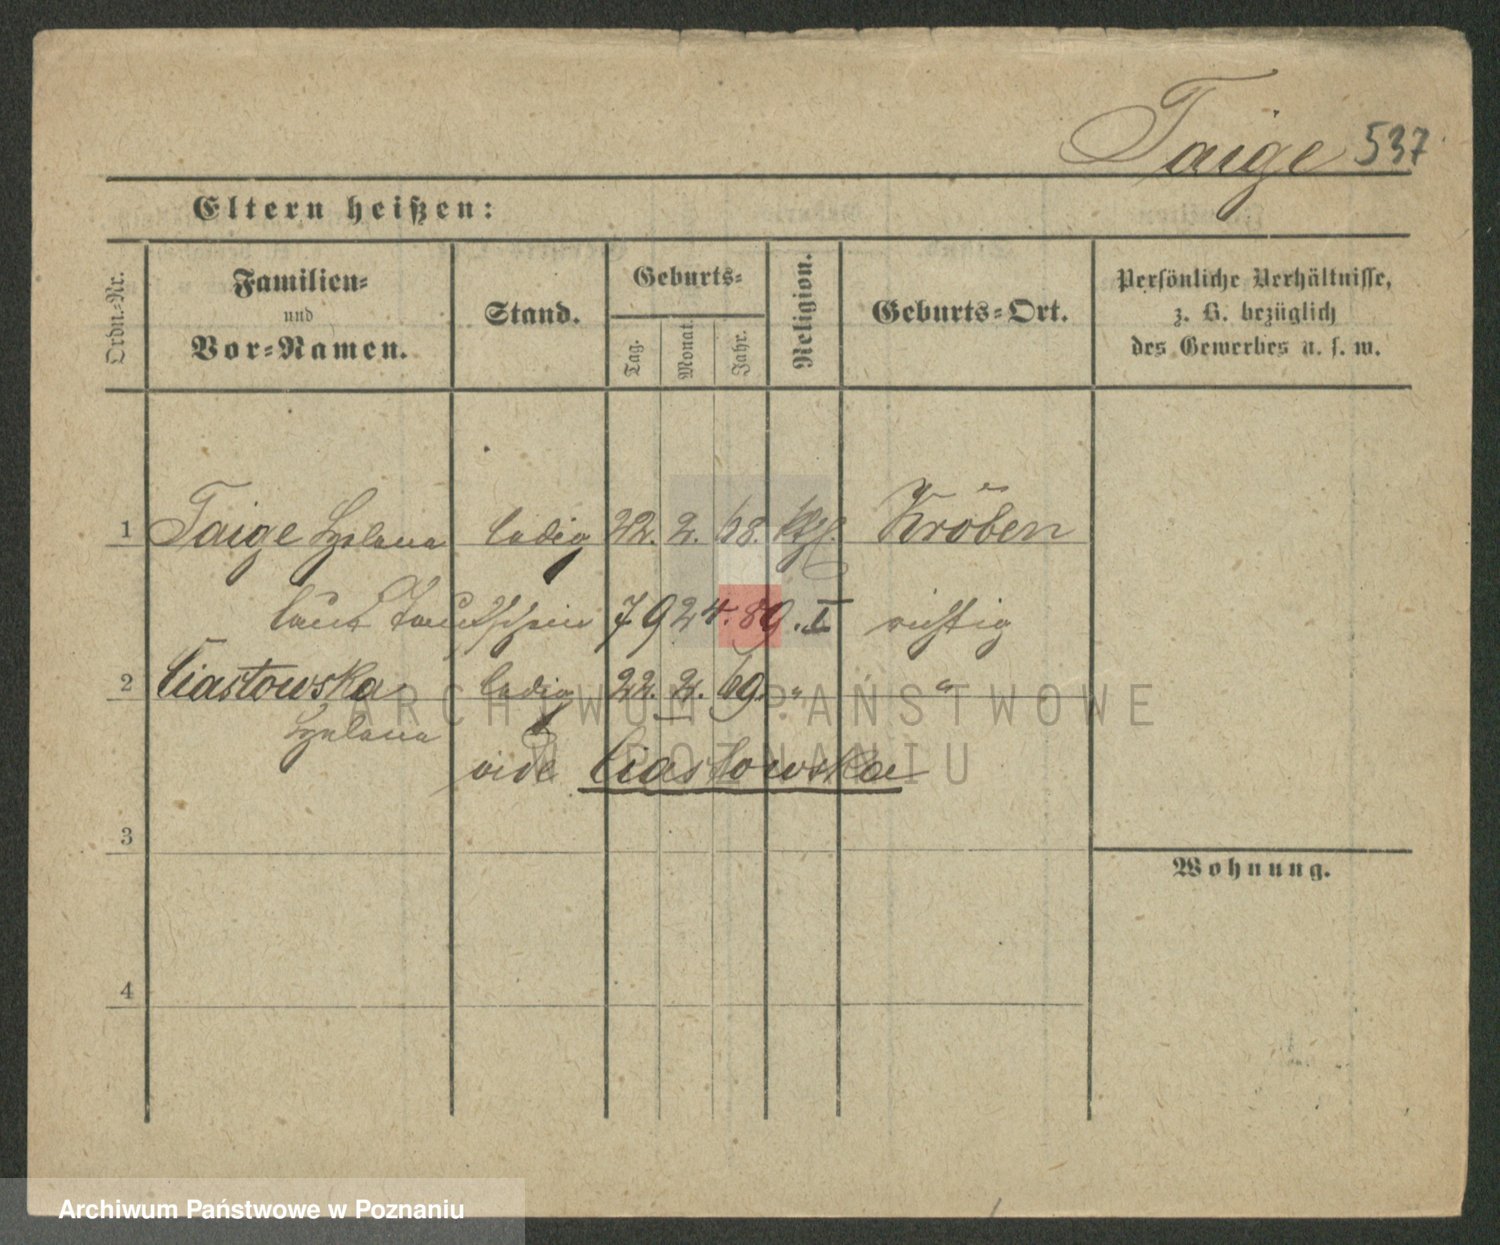 Taige 537
Eltern heißen:
Ordn.-Nr.
Familien-
und
Vor-Namen.
Stand.
Geburts-
Tag.
Monat.
Jahr.
Religion.
Geburts-Ort.
Persönliche Verhältnisse,
z. B. bezüglich
des Gewerbes u. s. w.
1 Taige Helena ledig 22. 2. 68. kth. Kröben
laut Taufschein 7924.89. I richtig
2 Ciastowska ledig 22. 2. 69. " "
Helena
vide Ciastowska
3
Wohnung.
4
ARCHIWUM PAŃSTWOWE
W POZNANIU
Archiwum Państwowe w Poznaniu